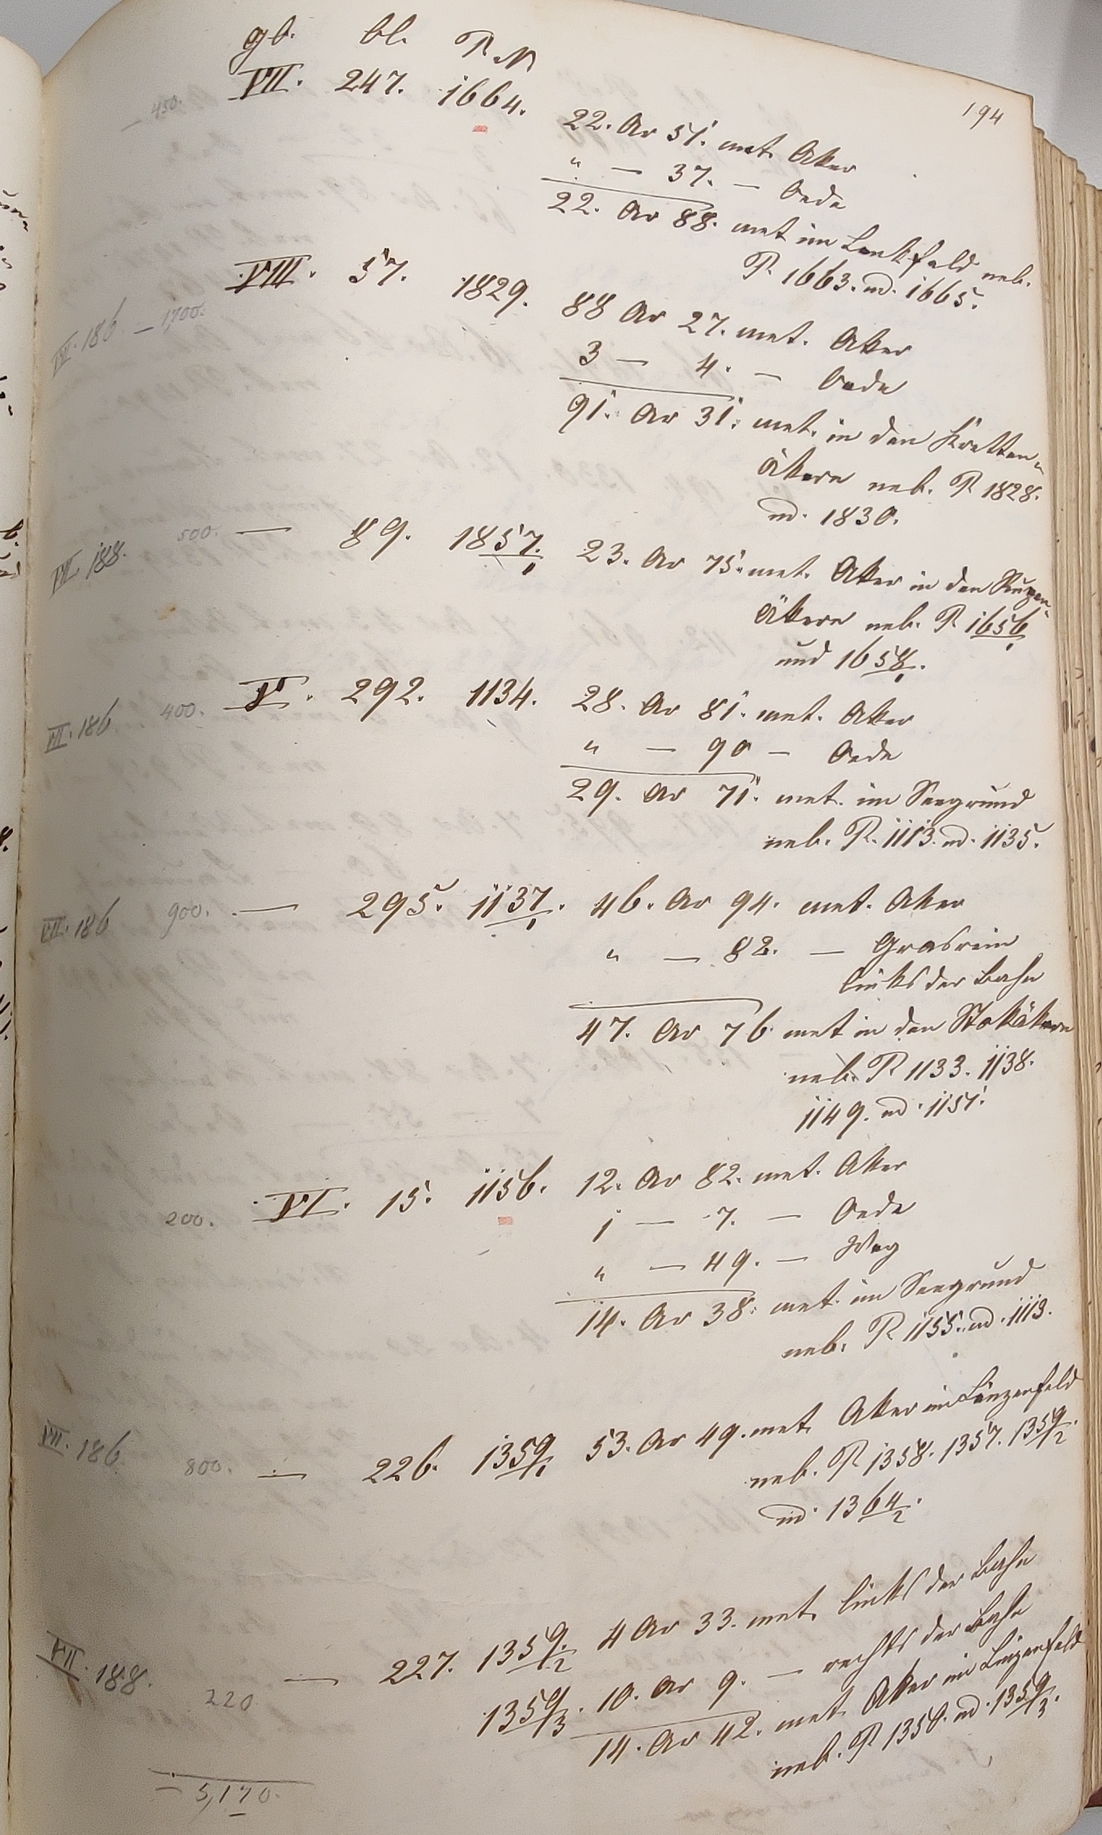 194
gb. bl. P. N
450. VII. 247. 1664. 22. Ar 51. met. Aker
" — 37. — Oede
22. Ar 88. met im Lankfeld neb.
P. 1663. nd. 1665.
VII. 186 — 1700. VIII. 57. 1829. 88 Ar 27. met. Aker
3 — 4. — Oede
91. Ar 31. met. in den Kretten-
äkern neb. P. 1828.
nd. 1830.
VII. 188. 500. — 89. 1857/1. 23. Ar 75. met. Aker in den
äkern neb. P. 1656/1
und 1658/1.
VII. 186 400. V. 292. 1134. 28. Ar 81. met. Aker
" — 90 — Oede
29. Ar 71. met. im Seegrund
neb. P. 1113. nd. 1135.
VII. 186 900. — 295. 1137/1. 46. Ar 94. met. Aker
" — 82. — Grasrain
links der Bahn
47. Ar 76 met in den Stokäkern
neb. P. 1133. 1138.
1149. nd. 1151.
200. VI. 15. 1156. 12. Ar 82. met. Aker
1 — 7. — Oede
" — 49. — Weg
14. Ar 38. met. im Seegrund
neb. P. 1155. nd. 1113.
VII. 186. 800. — 226. 1359/1 53. Ar 49. met. Aker im Linzenfeld
neb. P. 1358. 1357. 1359/2.
nd. 1364/2.
VII. 188. 220 — 227. 1359/2 4 Ar 33. met. links der Bahn
1359/3. 10. Ar 9. — rechts der Bahn
14. Ar 42. met. Aker im Linzenfeld
neb. P. 1358. nd. 1359/3.
5,170.